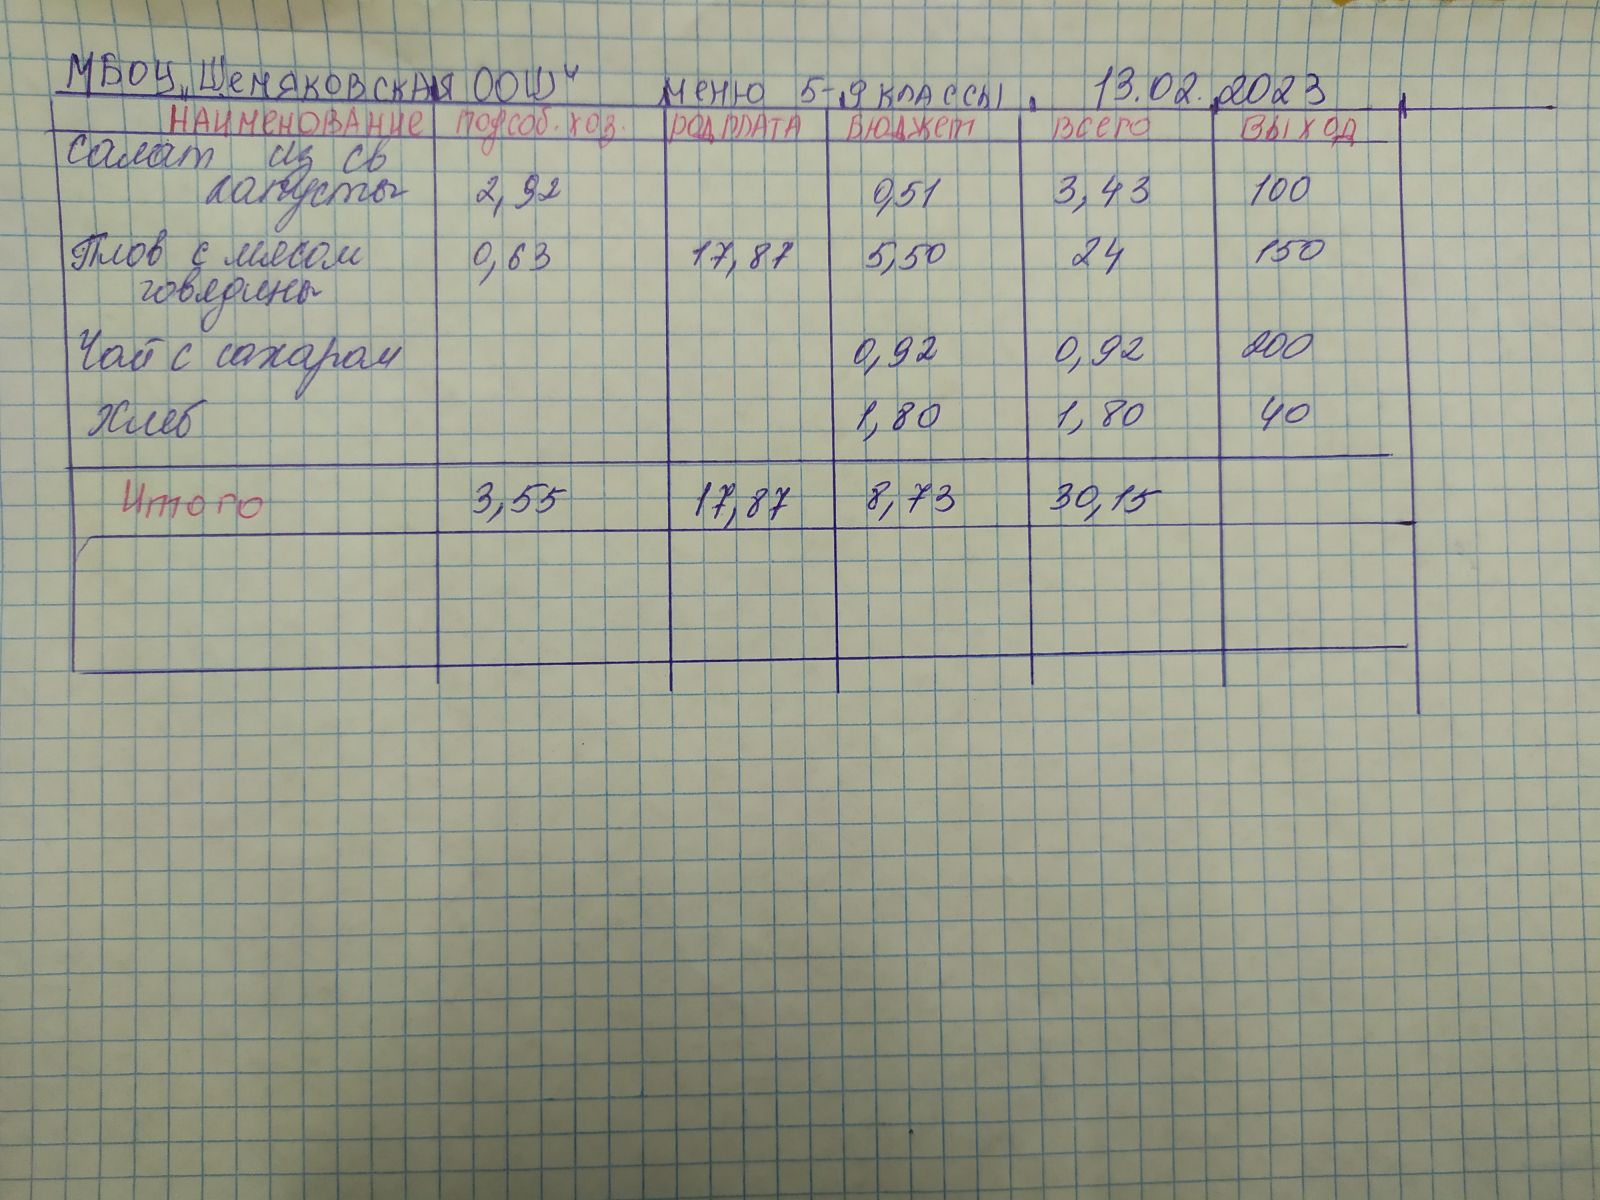 МБОУ "Шеняковская ООШ" меню 5-9 классы. 13.02.2023
Наименование подсоб.хоз. родплата бюджет всего выход
Салат из св
капусты 2,92 0,51 3,43 100
Плов с мясом 0,63 17,87 5,50 24 150
говядины
Чай с сахаром 0,92 0,92 200
Хлеб 1,80 1,80 40
Итого 3,55 17,87 8,73 30,15